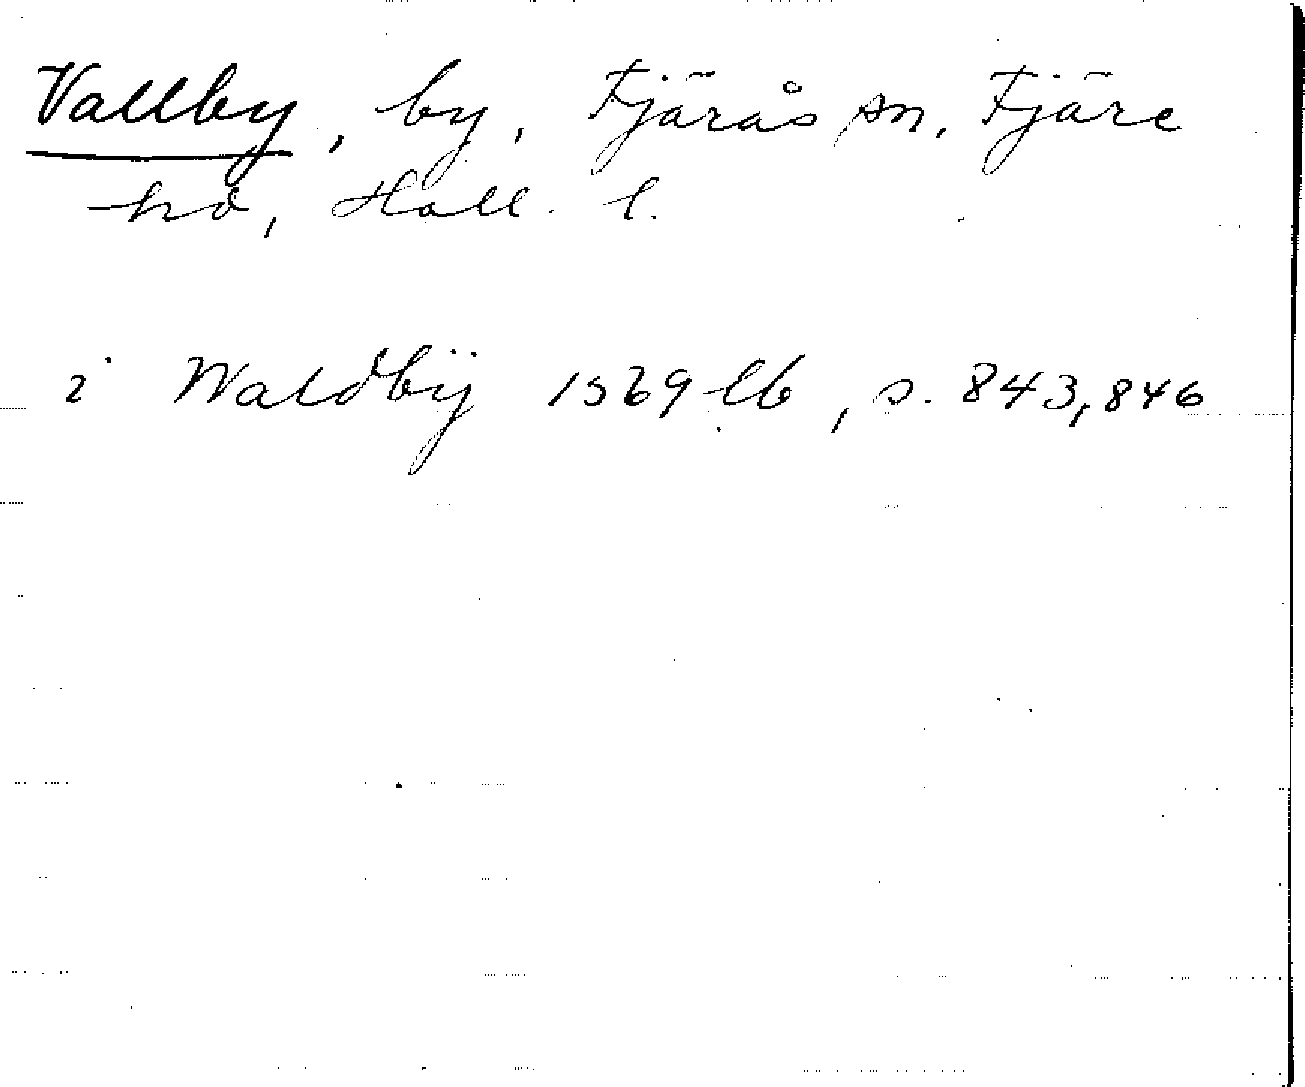 Vallby, by, Fjärås sn, Fjäre
hd, Hall. l.
i Waldbÿ 1569 lb, s. 843, 846